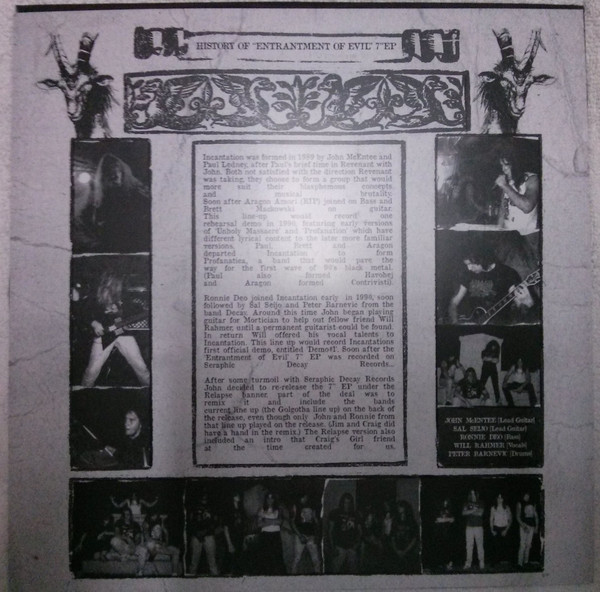 HISTORY OF "ENTRANTMENT OF EVIL" 7"EP
Incantation was formed in 1989 by John McEntee and
Paul Ledney, after Paul's brief time in Revenant with
John. Both not satisfied with the direction Revenant
was taking, they choose to form a group that would
more suit their blasphemous concepts
and musical brutality.
Soon after Aragon Amori (RIP) joined on Bass and
Brett Makowski on guitar.
This line-up would record one
rehearsal demo in 1990, featuring early versions
of 'Unholy Massacre' and 'Profanation' which have
different lyrical content to the later more familiar
versions. Paul, Brett and Aragon
departed Incantation to form
Profanatica, a band that would pave the
way for the first wave of 90's black metal.
(Paul also formed Havohej
and Aragon formed Contrivisti).
Ronnie Deo joined Incantation early in 1990, soon
followed by Sal Seijo and Peter Barnevic from the
band Decay. Around this time John began playing
guitar for Mortician to help out fellow friend Will
Rahmer, until a permanent guitarist could be found.
In return Will offered his vocal talents to
Incantation. This line up would record Incantations
first official demo, entitled 'Demo#1'. Soon after the
'Entrantment of Evil' 7" EP was recorded on
Seraphic Decay Records...
After some turmoil with Seraphic Decay Records
John decided to re-release the 7" EP under the
Relapse banner part of the deal was to
remix it and include the bands
current line up (the Golgotha line up) on the back of
the release, even though only John and Ronnie from
that line up played on the release. (Jim and Craig did
have a hand in the remix.) The Relapse version also
included an intro that Craig's Girl friend
at the time created for us.
JOHN McENTEE [Lead Guitar]
SAL SEIJO [Lead Guitar]
RONNIE DEO [Bass]
WILL RAHMER [Vocals]
PETER BARNEVE [Drums]